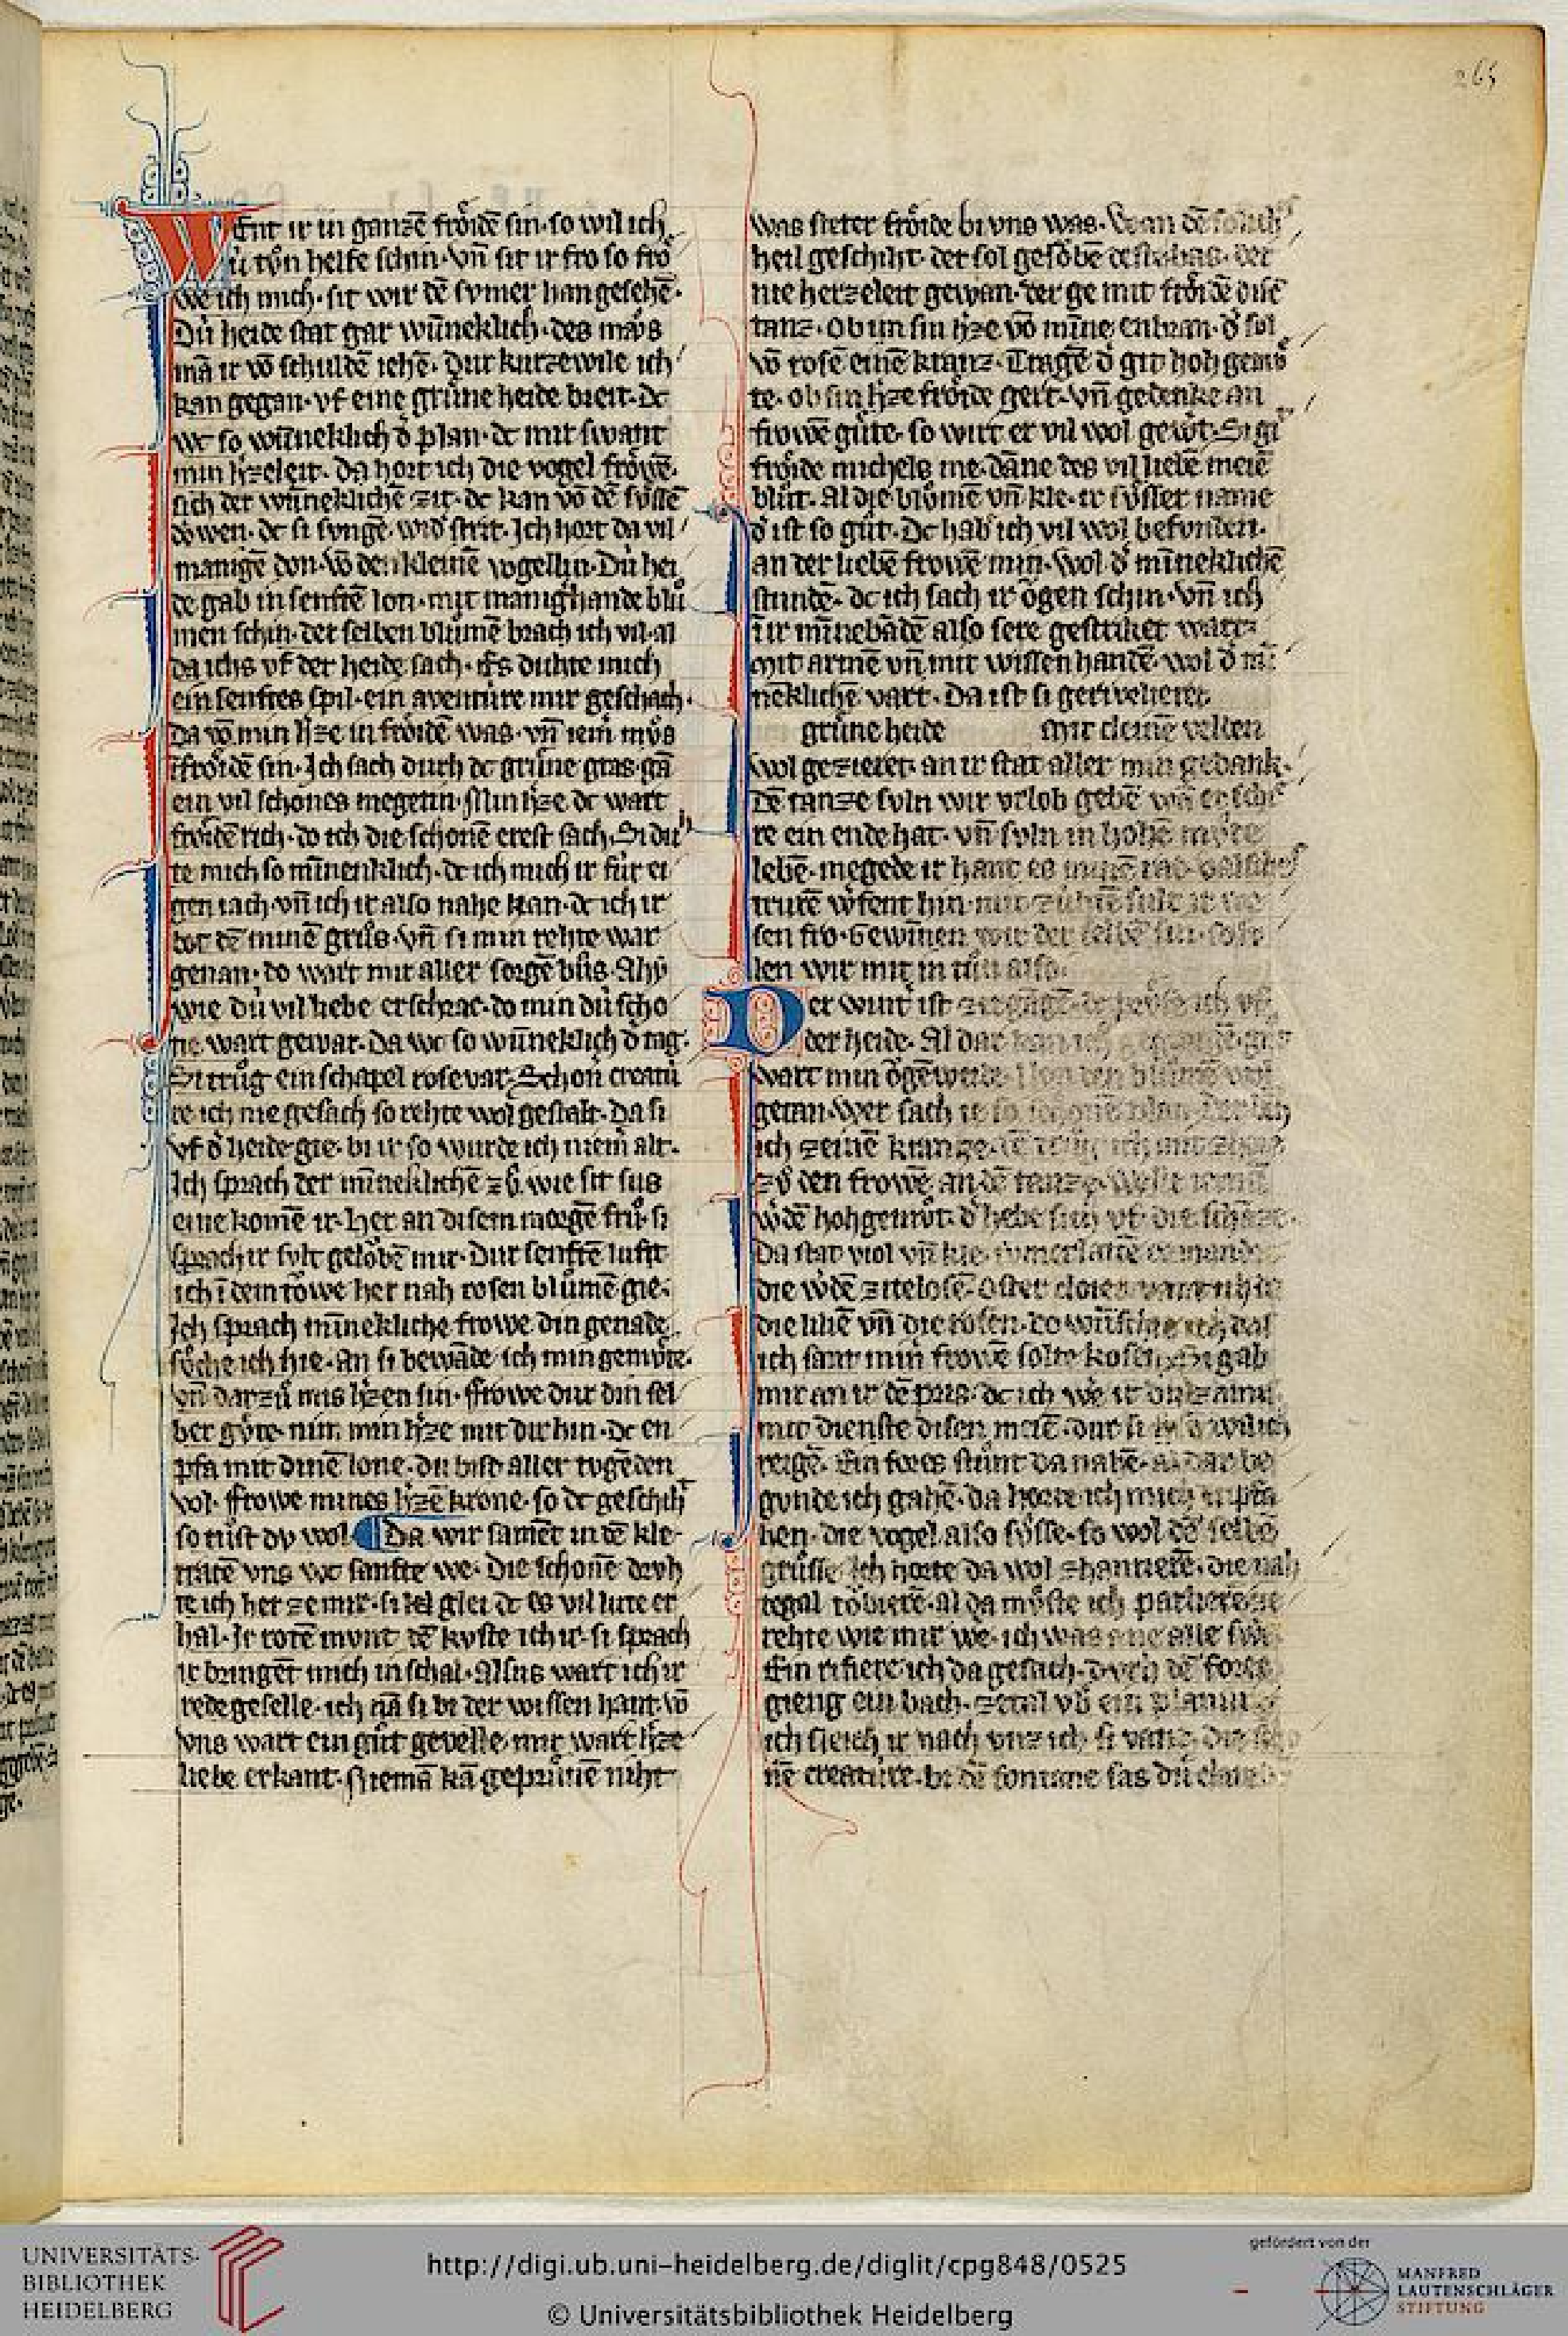 265
Went ir in ganzē froͤidē sin · so wil ich
ú tuͦn helfe schin · vn̄ sit ir fro so froͤ
we ich mich · sit wir dē svmer han gesehē ·
Dú heide stat gar wūneklich · des mvͦs
mā ir vō schuldē iehē · Dur kurzewile ich
kan gegan · vf eine gruͤne heide breit · dc
wc so wūneklich d̓ plan · dc mir swant
min h̓zeleit · da hort ich die vogel froͤwē ·
sich der wūneklichē zit · dc kan vō dē svͤssē
doͤwen · dc si svngē · wid̓ strit · Ich hort da vil
manigē don · vō den kleinē vogellin · Dú hei
de gab in senftē lon · mit maniǵhande bluͦ
men schin · der selben bluͦmē brach ich vil · al
da ichs vf der heide sach · es duhte mich
ein senftes spil · ein aventúre mir geschach ·
Da vō min h̓ze in froͤidē was · vn̄ iem̓ mvͦs
ī froͤidē sin · Ich sach durh dc gruͤne gras · gā
ein vil schones megetin · Min h̓ze dc wart
froͤidē rich · do ich die schonē erest sach · Si duh
te mich so mīnenklich · dc ich mich ir fúr ei
gen iach · vn̄ ich ir also nahe kan · dc ich ir
bot dē minē gruͦs · vn̄ si min rehte war
genan · do wart mir aller sorgē buͦs · Ahy
wie dú vil liebe erschrac · do min dú scho
ne wart gewar · Da wc so wūneklich d̓ tag ·
Si truͦg ein schapel rosevar · Schon̓ creatú
re ich nie gesach so rehte wol gestalt · Da si
vf d̓ heide gie · bi ir so wurde ich niem̓ alt ·
Ich sprach der mīneklichē zvͦ · wie sit sus
eine komē ir · Her an disem morgē fruͦ · si
sprach ir svlt geloͮbē mir · Dur senftē luft
ich ī dem toͮwe her nah rosen bluͦmē gie ·
Ich sprach mīnekliche frowe din genade
svͦche ich hie · An si bewāde ich min gemvͤte ·
vn̄ darzuͦ mis h̓zen sin · ffrowe dur din sel
ber gvͤte · nim min h̓ze mit dir hin · dc en
pfa mit dinē lone · du bist aller tvgēden
vol · ffrowe mines h̓zē krone · so dc geschiht
so tuͦst dv wol · Da wir samēt in dē kle
tratē vns wc sanfte we · Die schonē drvh
te ich her ze mir · si lei glei dc es vil lute er
hal · Ir rotē mvnt dē kvste ich ir · si sprach
ir bringēt mich in schal · Alsus wart ich ir
rede geselle · ich nā si bi der wissen hant · vō
vns wart ein guͦt gevelle · mir wart h̓ze
liebe erkant · Niemā kā gepruͤuē niht
was steter froͤide bi vns was · Wan dē solich
heil geschiht · der sol geloͮbē deste bas · der
nie herzeleit gewan · der ge mit froͤidē disē
tanz · ob im sin h̓ze vō mīne enbran · d̓ sol
vō rosē einē kranz · Tragē d̓ git hoh gemvͤ
te · ob sin h̓ze froͤide gert · vn̄ gedenke an
frowē guͤte · so wirt er vil wol gew̓t · Si git
froͤide michels me · dāne des vil liebē meiē
bluͦt · Al die bluͦmē vn̄ kle · ir svͤsser name
d̓ ist so guͦt · Dc hab ich vil wol befunden ·
an der liebē frowē min · Wol d̓ mīneklichē
stundē · dc ich sach ir oͮgen schin · vn̄ ich
ī ir mīnebādē also sere gestriket wart
Mit armē vn̄ mit wissen handē · wol d̓ mī
neklichē vart · Da ist si gerivelieret
gruͤne heide mit cleinē velten
Wol gezieret · an ir stat aller min gedank ·
Dē tanze svln wir vrlob gebē wā er schie
re ein ende hat · vn̄ svln in hohē mvͤte
lebē · megede ir hant es iem̓ rat · valsches
trurē w̓fent hin · mit zúhtē sult ir we
sen fro · Gewīnen wir der selbē sin · so sv
len wir mit in tuͦn also ·
Der wint̓ ist zergangē · dc pruͤve ich vf
der heide · Al dar kan ich gegangē · guͦt
wart min oͮgē weide · Von den bluͦmē wol
getan · Wer sach ie so schonē plan · Der brach
ich zeinē kranze · dē truͦg ich mit
zvͦ den frowē an dē tanze · Welle iemā
w̓dē hohgemvͦt · d̓ hebe sich vf die schanze ·
Da stat viol vn̄ kle · svmerlattē camandre
die w̓dē zitelosē · Oster cloien vant ich da
die liliē vn̄ die rosen · do wunschte ich das
ich sant min̓ frowē solte kosen · Si gab
mir an ir dē pris · dc ich we ir dulz amis
mit dienste disen meiē · dur si so wil ich
reigē · Ein fores stuͦnt da nahē · al dar be
gunde ich gahē · da horte ich mich enpfa
hen · die vogel also svͤsse · so wol dē selbē
gruͦsse · Ich horte da wol zhantierē · die nah
tegal toͮbierē · al da mvͤste ich parlierē ze
rehte wie mir we · ich was ane alle swe
Ein rifiere ich da gesach · dvrh dē fores
gieng ein bach · zetal vb̓ ein planiure
ich sleich ir nach vnz ich si vant · die scho
nē creatúre · bi dē fontane sas dú clare
UNIVERSITÄTS-
BIBLIOTHEK
HEIDELBERG
http://digi.ub.uni-heidelberg.de/diglit/cpg848/0525
© Universitätsbibliothek Heidelberg
gefördert von der
MANFRED
LAUTENSCHLÄGER
STIFTUNG